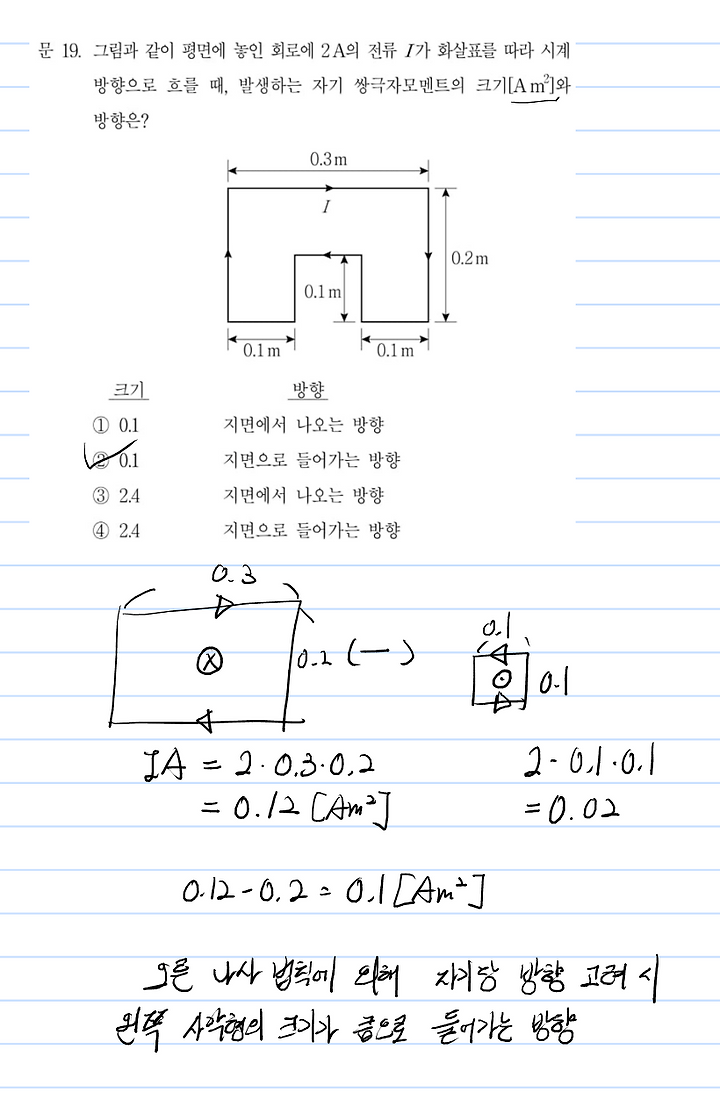 문 19. 그림과 같이 평면에 놓인 회로에 2A의 전류 I가 화살표를 따라 시계
방향으로 흐를 때, 발생하는 자기 쌍극자모멘트의 크기[A m²]와
방향은?
0.3m
I
0.2m
0.1m
0.1m 0.1m
크기 방향
① 0.1 지면에서 나오는 방향
② 0.1 지면으로 들어가는 방향
③ 2.4 지면에서 나오는 방향
④ 2.4 지면으로 들어가는 방향
0.3
0.1
0.2 (—) 0.1
IA = 2·0.3·0.2 2·0.1·0.1
= 0.12 [Am²] = 0.02
0.12-0.2 = 0.1 [Am²]
오른 나사 법칙에 의해 자기장 방향 고려 시
왼쪽 사각형의 크기가 큼으로 들어가는 방향